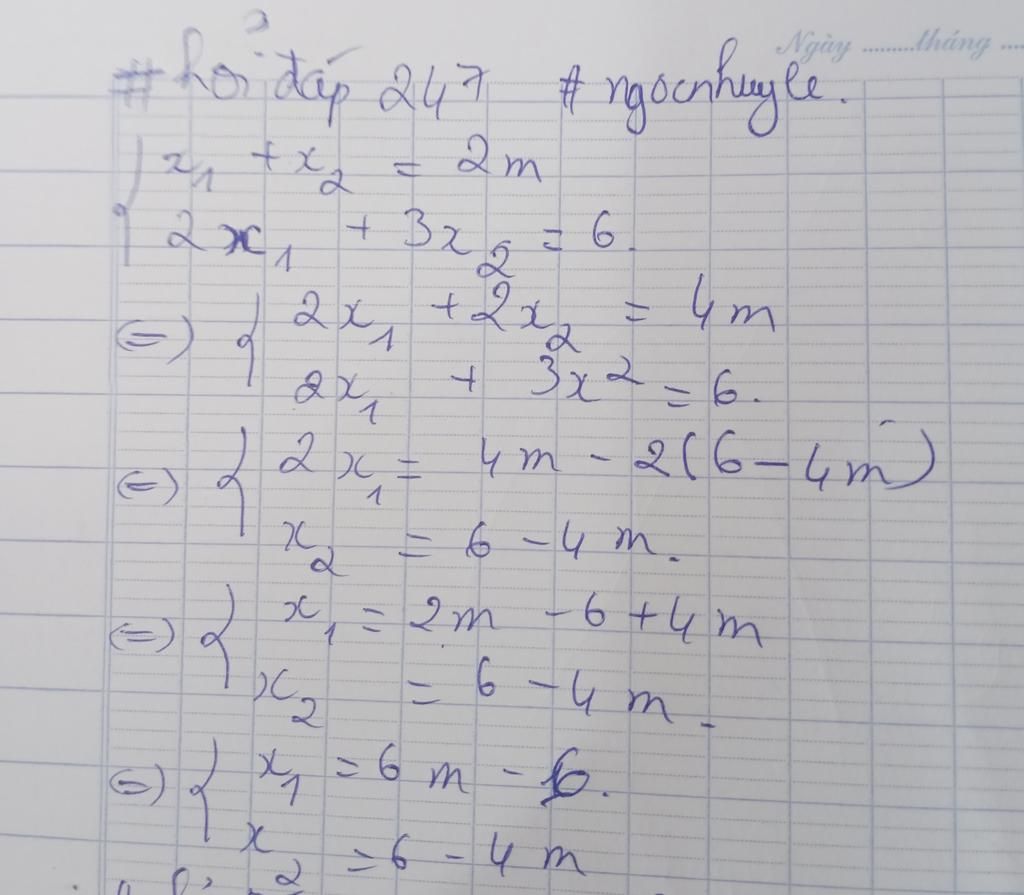 Ngày .........tháng ....
# hỏi đáp 247 # ngocnhuyle.
{ x₁ + x₂ = 2m
2x₁ + 3x₂ = 6.
(=) { 2x₁ + 2x₂ = 4m
2x₁ + 3x² = 6.
(=) { 2x₁ = 4m - 2(6 - 4m)
x₂ = 6 - 4m.
(=) { x₁ = 2m - 6 + 4m
x₂ = 6 - 4m.
(=) { x₁ = 6m - 6.
x₂ = 6 - 4m